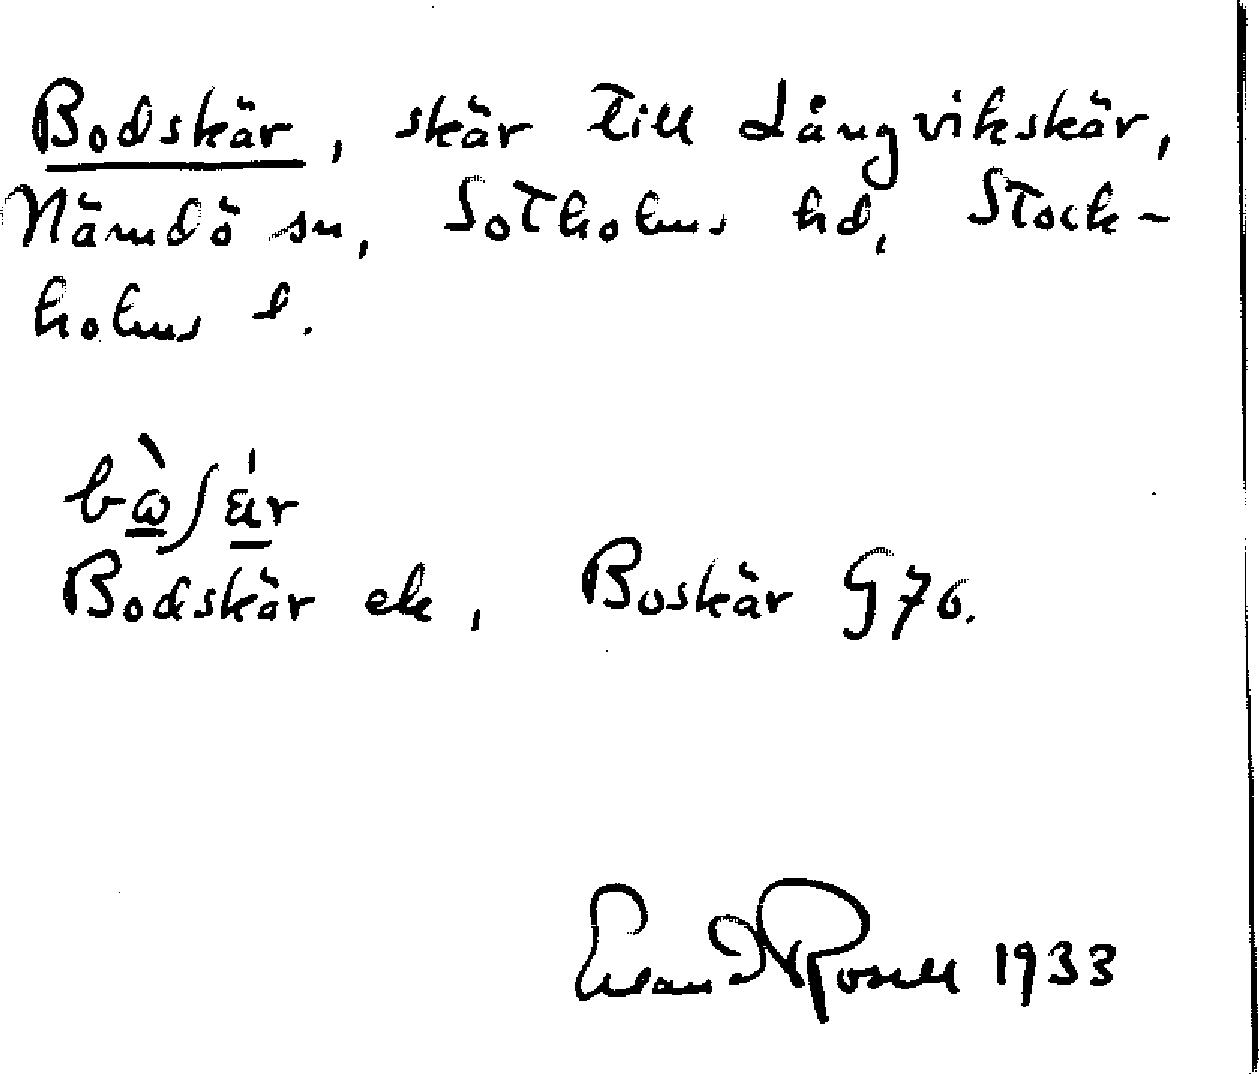 Bodskär, skär till Långvikskär,
Nämdö sn, Sotholms hd, Stock-
holms l.
bὼʃä́r
Bodskär ek, Boskär G76.
Erland Rosell 1933